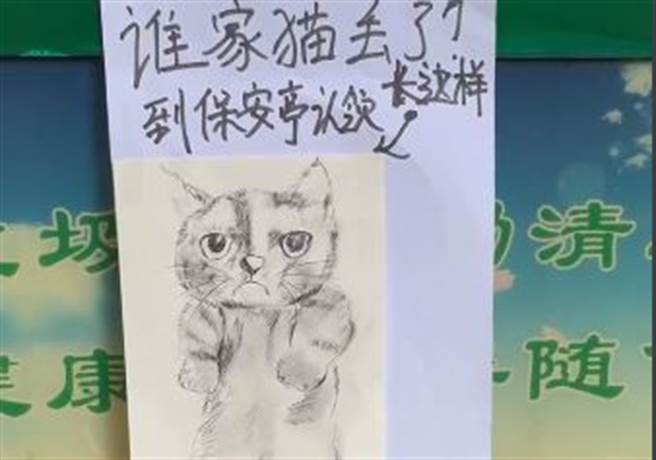 谁家猫丢了?
到保安亭认领
长这样
圾
清
康
随